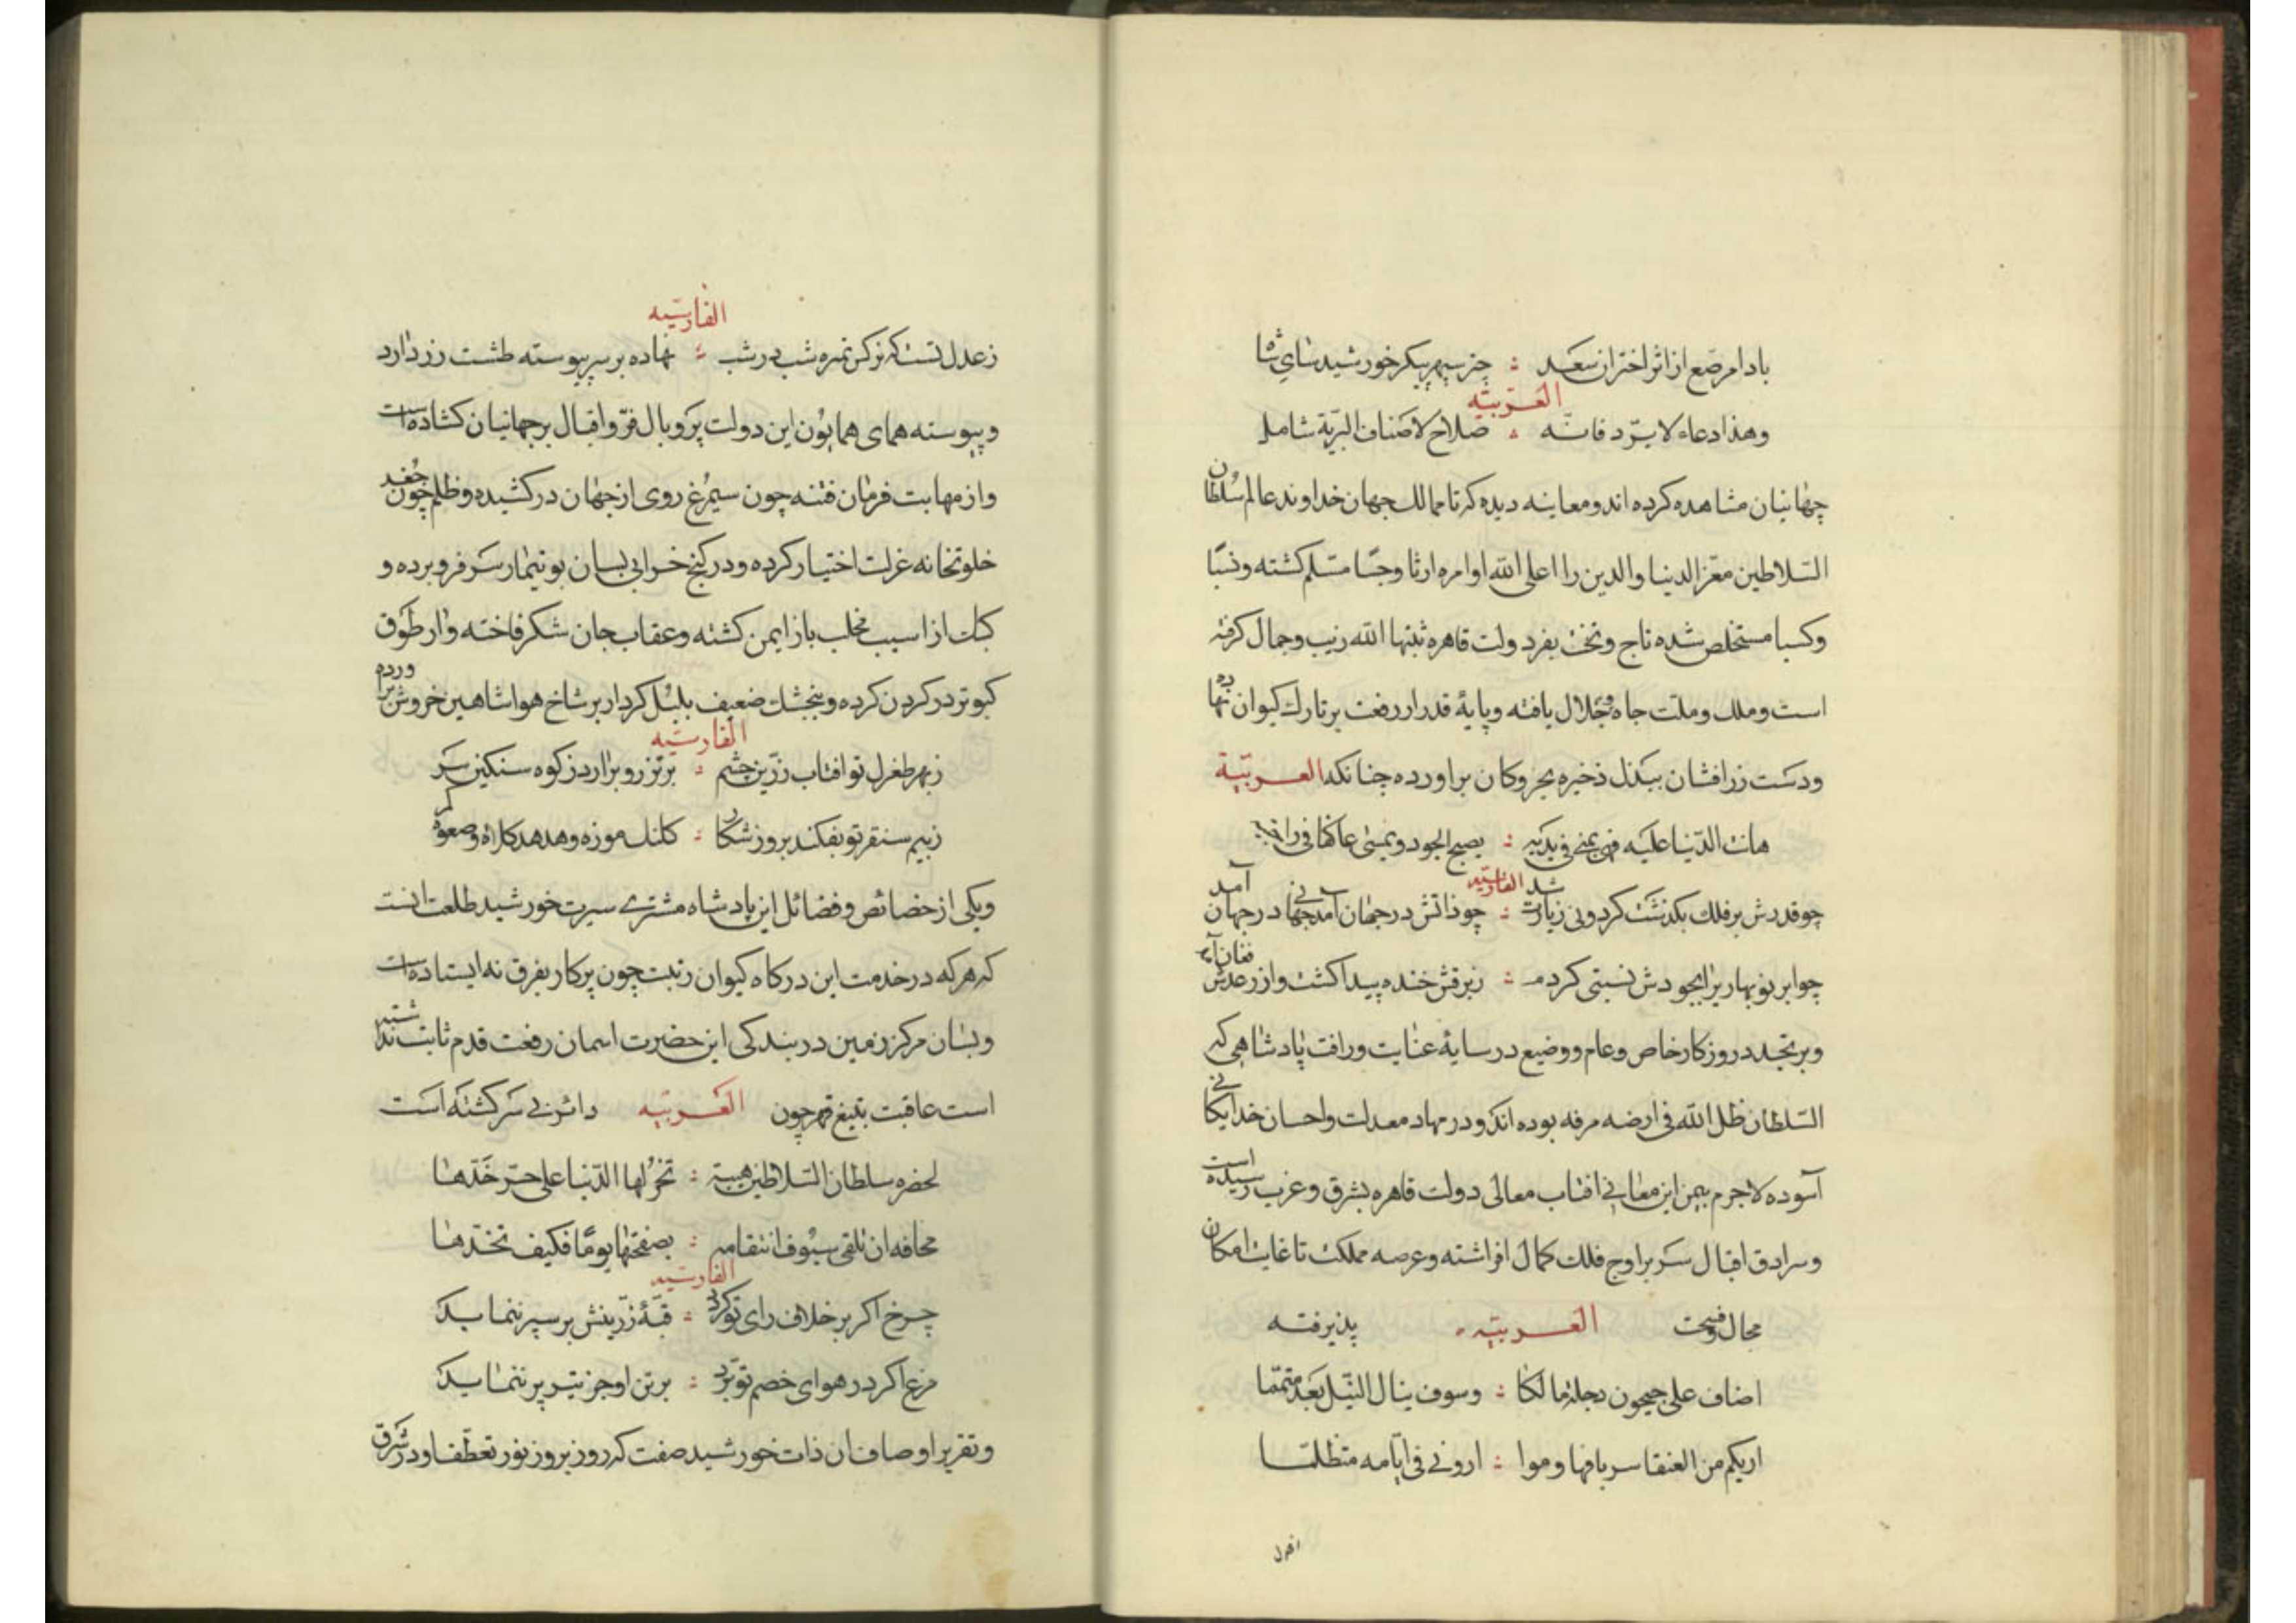 بادا مرصع از اثر اختران سعد : چتر سپهر پیکر خورشید سای شاه
العربیّه
وهذا دعاء لا یردّ فانّه : صلاح لاصناف البریّة شامل
جهانیان مشاهده کرده اند و معاینه دیده که تا ممالک جهان خداوند عالم سلطان
السّلاطین معزّ الدنیا والدین را اعلی الله اوامره ارثا و حسّا مسّلم کشته و نسبًا
وکسبا مستخلص شده تاج و تخت بفر دولت قاهره ثبتها الله زیب و جمال کرفته
است و ملک و ملّت جاه و جلال یافته و پایهٔ قدر از رفعت بر تارک کیوان نهاده
ودست زرافشان ببذل ذخیره بحر و کان براورده چنانکه العربیّة
هانت الدّنیا علیه فهی یمنی فی یدیه : یصبح الجود و یمسی عاکفا فی
الفارسیّه
چو قدرش بر فلک بکذشت کردونی زیادت شد : چو ذاتش در جهان آمد جهانی در جهان آمد
چو ابر نوبهاریرا بجودش نسبتی کردم : ز برقش خنده پیدا کشت و از رعدش فغان آمد
و بر تجدد روزکار خاص و عام و وضیع در سایهٔ عنایت و رافت پادشاهی که
السّلطان ظل الله فی ارضه مرفه بوده اند و در مهاد معدلت و احسان خدایکانی
آسوده لاجرم بیمن این معانی افتاب معالی دولت قاهره بشرق و غرب رسیده است
وسرادق اقبال سر بر اوج فلک کمال افراشته و عرصه مملکت تا غایت امکان
مجال و فسحت العربیّه پذیرفته
اضاف علی جیحون دجلة مالکا : وسوف ینال النّیل بعد متمّما
اریکم من العنقا سربا فهاوموا : ارونی فی ایّامه متظلمّا
الفارسیّه
ز عدل تست که نرکس نمره شب در شب : نهاده بر سر پیوسته طشت زر دارد
و پیوسته همای همایون این دولت پر و بال فرّ و اقبال بر جهانیان کشاده است
و از مهابت فرمان فتنه چون سیمرغ روی از جهان در کشیده و ظلم چون جغد
خلوتخانه عزلت اختیار کرده و در کنج خرابی بسان بوتیمار سر فرو برده و
کبک از اسیب مخلب باز ایمن کشته و عقاب جان شکر فاخته وار طوق
کبوتر در کردن کرده و بنجشک ضعیف بلبل کردار بر شاخ هوا شاهین خروش براورده
الفارسیّه
ز بهر طغرل تو افتاب زرّین چشم : برتز رو برارد ز کوه سنکین سر
ز بیم سنقر تو بفکند بروز شکار : کلنک موزه و هدهد کلاه و صعوه کمر
و یکی از خصائص و فضائل این پادشاه مشتری سیرت خورشید طلعت انست
که هر که در خدمت این درکاه کیوان رتبت چون پرکار بفرق نه ایستاده است
و بسان مرکز زمین در بندکی این حضرت اسمان رفعت قدم ثابت نداشته
است عاقبت بتیغ قهر چون العربیّه دائره بی سر کشته است
لحضره سلطان السّلاطین هیبة : تخرّ لها الدّنیا علی حرّ خدّها
مخافه ان تلقی سیوف انتقامه : بصفحتها یومًا فکیف تحدّها
الفارسیّه
چرخ اکر بر خلاف رای تو کردد : قبّهٔ زرّینش بر سپر بنماید
مرغ اکر در هوای خصم تو پرّد : بر تن او جز تیر پر ننماید
و تقریر اوصاف ان ذات خورشید صفت که روز بروز نور تعطّف او در شرق